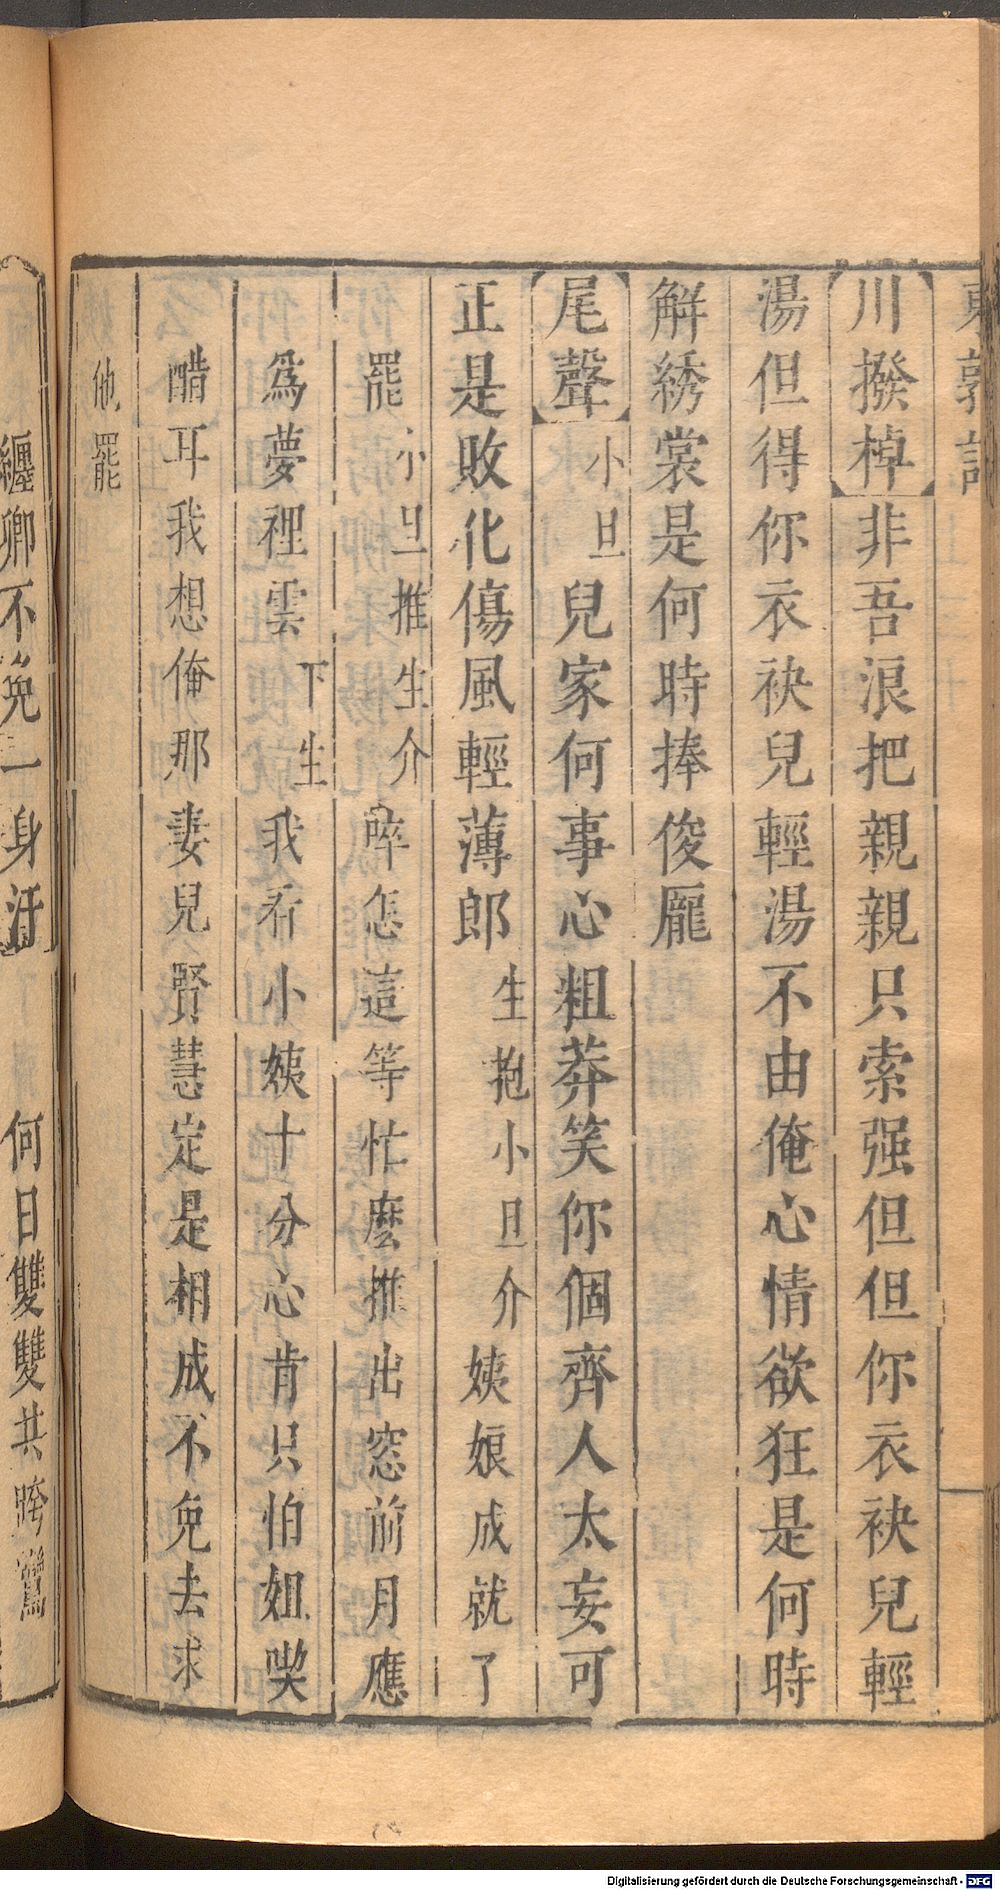 東郭記
【川撥棹】非吾浪把親親只索强但但你衣袂兒輕
湯但得你衣袂兒輕湯不由俺心情欲狂是何時
解綉裳是何時捧俊龐
【尾聲】小旦兒家何事心粗莽笑你個齊人太妄可
正是敗化傷風輕薄郎生抱小旦介姨娘成就了
罷小旦推生介啐怎這等忙麽推出窓前月應
爲夢裡雲下生我看小姨十分心肯只怕姐喫
醋耳我想俺那妻兒賢慧定是相成不免去求
他罷
纏卿不免一身汙 何日雙雙共跨鸞
Digitalisierung gefördert durch die Deutsche Forschungsgemeinschaft - DFG